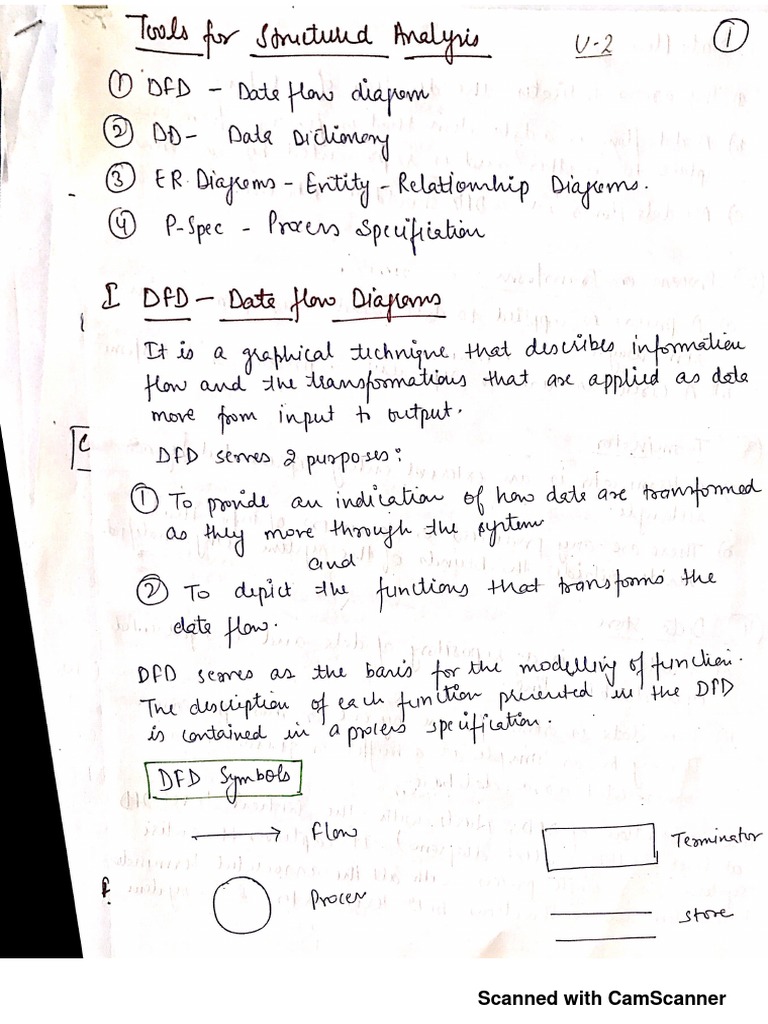 Tools for Structured Analysis U-2 1
1 DFD - Data flow diagram
2 DD - Data Dictionary
3 ER Diagrams - Entity - Relationship Diagrams.
4 P-Spec - Process Specification
I DFD - Data flow Diagrams
It is a graphical technique that describes information
flow and the transformations that are applied as data
move from input to output.
DFD serves 2 purposes:
1 To provide an indication of how data are transformed
as they move through the system
and
2 To depict the functions that transforms the
data flow.
DFD serves as the basis for the modelling of function.
The description of each function presented in the DFD
is contained in a process specification.
DFD Symbols
flow
Terminator
Process
store
Scanned with CamScanner